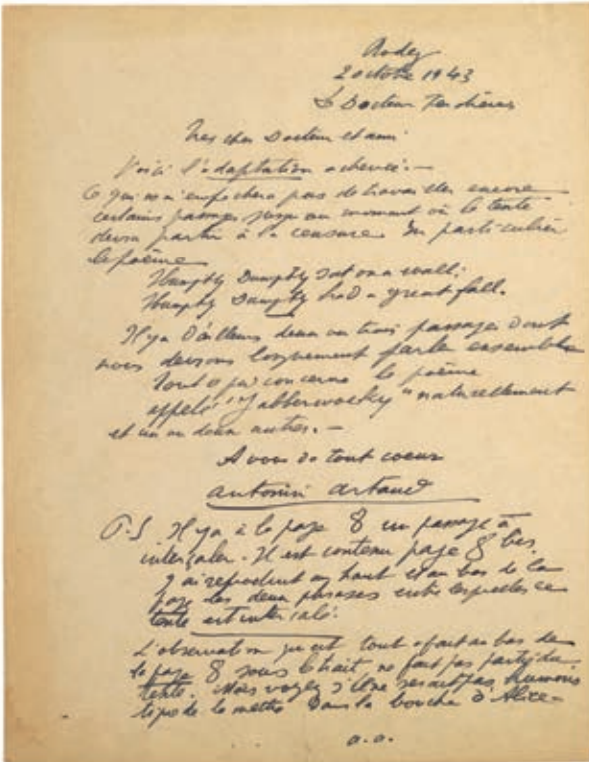 Rodez
2 octobre 1943
Le Docteur Ferdière
Tres cher Docteur et ami
Voici l'adaptation achevée. —
Ce qui ne m'empêchera pas de travailler encore
certains passages jusqu'au moment où le texte
devra partir à la censure. En particulier
le poème
Humpty Dumpty sat on a wall:
Humpty Dumpty had a great fall.
Il y a d'ailleurs deux ou trois passages dont
nous devons longuement parler ensemble
Tout ce qui concerne le poème
appelé "Jabberwocky" naturellement
et un ou deux autres. —
A vous de tout coeur
Antonin Artaud
P.S Il y a à la page 8 un passage à
intercaler. Il est contenu page 8 bis.
J'ai reproduit en haut et au bas de la
page les deux phrases entre lesquelles ce
texte est intercalé.
L'observation qui est tout à fait au bas de
la page 8 sous le trait ne fait pas partie du
texte. Mais voyez s'il ne serait pas humoris
tique de la mettre dans la bouche d'Alice —
a.a.